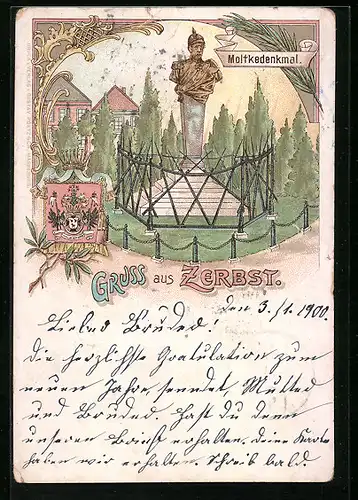 Moltkedenkmal.
Gruss aus Zerbst.
den 3./1. 1900.
Liebes Bruder!
Die herzlichste Gratulation zum
neuen Jahre, sendet Mutter
und Bruder. Hast du denn
unseren Brief erhalten, deine Karte
haben wir erhalten. Schreib bald.